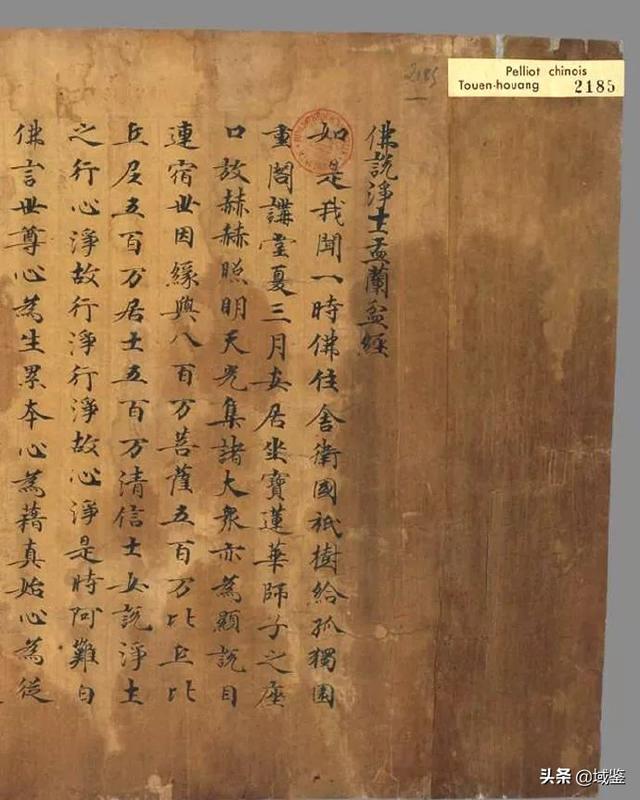 Pelliot chinois
Touen-houang 2185
2185
佛說淨土盂蘭盆經
如是我聞一時佛住舍衛國祇樹給孤獨園
重閣講堂夏三月安居坐寶蓮華師子之座
口放赫赫照明天光集諸大衆亦為顯說目
連宿世因緣與八百万菩薩五百万比丘比
丘尼五百万居士五百万清信士女說淨土
之行心淨故行淨行淨故心淨是時阿難白
佛言世尊心為生累本心為藉真始心為從
头条 @域鉴